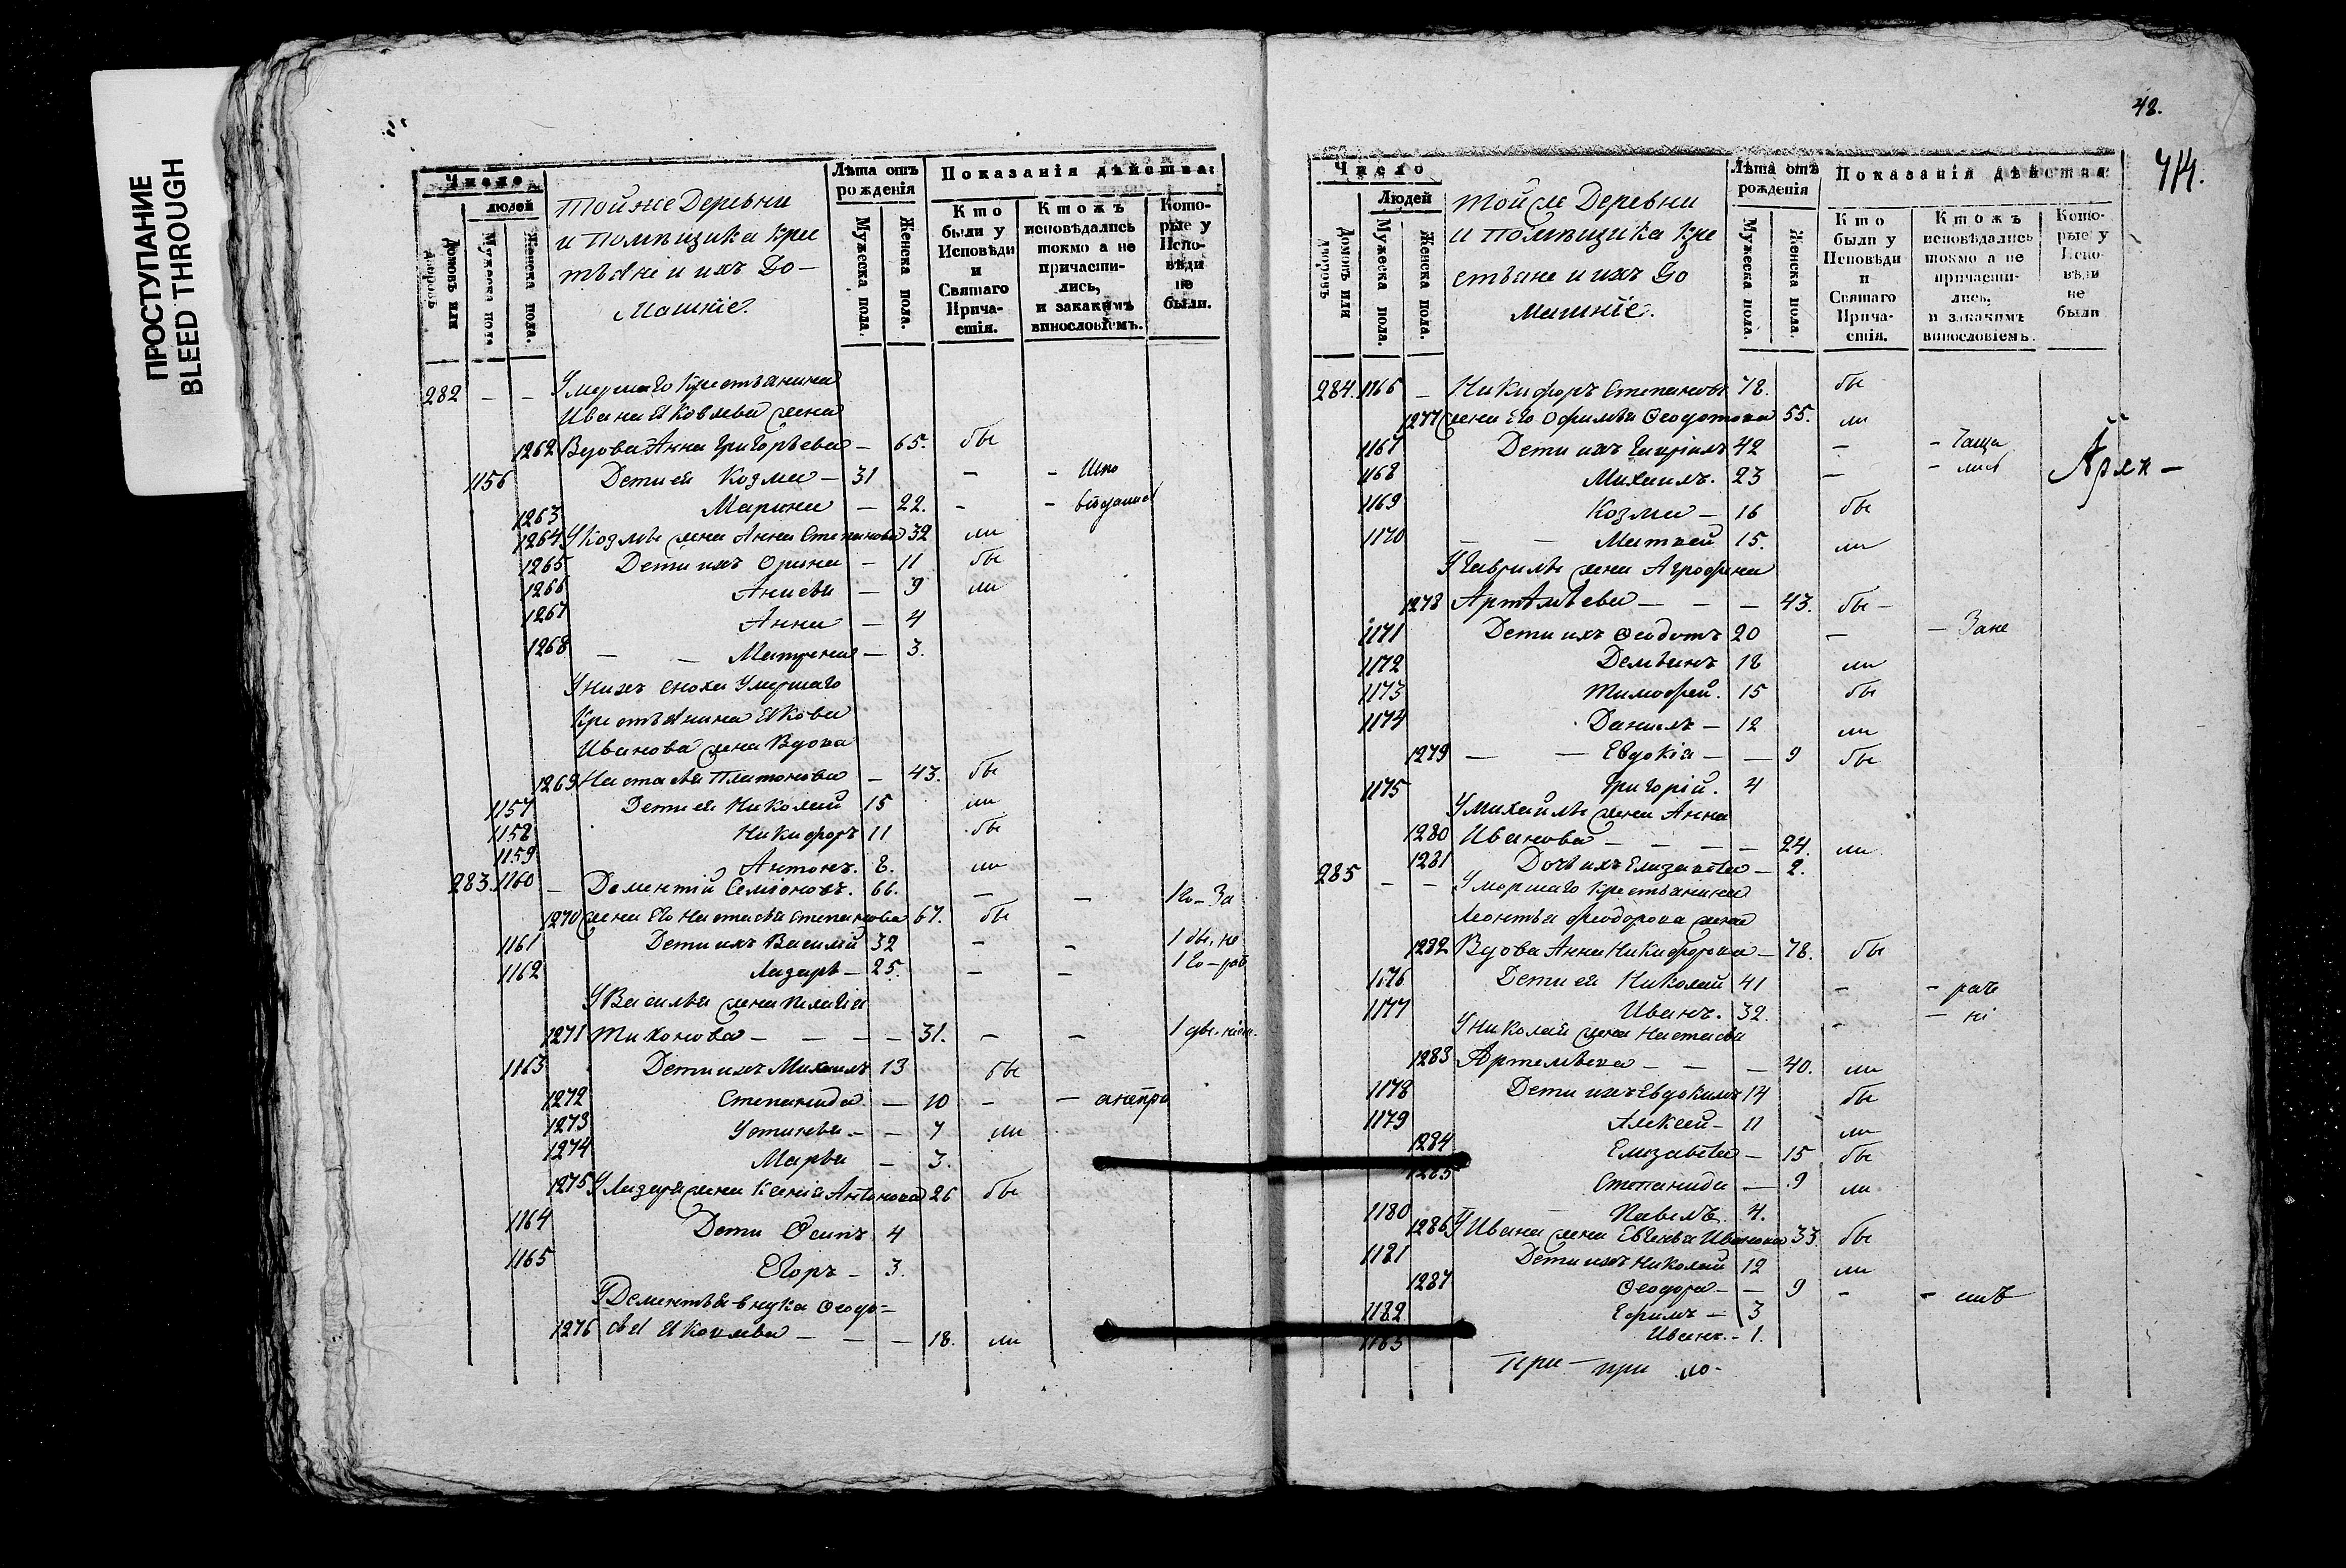 ПРОСТУПАНИЕ
BLEED THROUGH
Число
людей
Домовъ или дворовъ
Мужеска пола
Женска пола.
Тойже Деревни
и помѣщика кре
стьяне и ихъ До-
машніе.
Лѣта отъ рожденія
Мужеска пола.
Женска пола.
Показанія дѣйства:
Кто были у Исповѣди и Святаго Прича-стія.
Ктожъ исповѣдались токмо а не причасти-лись, и закакимъ винословіемъ.
Кото-рые у Испо-вѣди не были.
282 — — Умершаго крестьянина
Ивана Яковлева жена
1262 Вдова Анна Григорьева — 65. бы
1156 Дети ей Козма — 31 — — Ипо
1263 Марина — 22. — —
1264 У Козмы жена Анна Степанова 32 ли
1265 Дети ихъ Орина — 11 бы
1266 Анисья — 9 ли
1267 Анна — 4
1268 — — Матрена — 3.
У нихъ сноха Умершаго
крестьянина Якова
Иванова жена Вдова
1269 Настасья Платонова — 43. бы
1157 Дети ей Николай 15 ли
1158 Никифоръ 11 бы
1159 Антонъ. 8. ли
283. 1160 — Дементій Семіоновъ. 66. — — 1 го — За
1270 жена Его Настасья Степанова 67. бы
1161 Дети ихъ Василій 32 — — 1 бы. не
1162 Лазарь — 25. — — 1 го — раб
У Василья жена Пелагія
1271 Тихонова — — — — 31. — — 1
1163 Дети ихъ Михаилъ 13 бы
1272 Степанида — 10 — — анепри
1273 Устинья — — 7 ли
1274 Марья — 3.
1275 У Лазаря жена Ксенія Антонова 26 бы
1164 Дети Осипъ 4
1165 Егоръ — 3.
У Дементья внука Ѳеодо=
1276 сья Яковлева — — — 18. ли
48.
714.
Число
Людей
Домовъ или дворовъ
Мужеска пола.
Женска пола.
Той же Деревни
и помѣщика кре
стьяне и ихъ До
машніе.
Лѣта отъ рожденія
Мужеска пола.
Женска пола.
Показанія дѣйства
Кто были у Исповѣди и Святаго Прича-стія.
Ктожъ исповѣдались токмо а не причасти-лись, и закакимъ винословіемъ.
Кото-рые у Испо-вѣди не были
284. 1166 — Никифоръ Степановъ 78. бы
1277 жена Его Офимья Ѳеодотова 55. ли
1167 Дети ихъ Гаврилъ 42 — —
1168 Михаилъ. 23 — —
1169 Козма — 16 бы
1170 — — Матвей 15. ли
У Гаврилы жена Агрофена
1278 Артемьева — — — 43. бы —
1171 Дети ихъ Ѳеодотъ 20 — — Зане
1172 Демьянъ 18 ли
1173 Тимофей. 15 бы
1174 Данилъ — 12 ли
1279 — — Евдокія — — 9 бы
1175 Григорій. 4
У Михайлы жена Анна
1280 Иванова — — — — 24. ли
1281 Дочь ихъ Елизавета — 2.
285 — — Умершаго крестьянина
Леонтья Феодорова жена
1282 Вдова Анна Никифорова — 78. бы
1176 Дети ей Николай 41 — — раче
1177 Иванъ. 32. — — ні
У Николая жена Настасья
1283 Артемьева — — — 40. ли
1178 Дети ихъ Евдокимъ 14 бы
1179 Алексей — 11 ли
1284 Елизавета — 15 бы
1285 Степанида — 9 ли
1180 Павелъ 4.
1286 У Ивана жена Евгенья Иванова 33. бы
1181 Дети ихъ Николай 12 ли
1287 Ѳеодора — — 9 — —
1182 Ефимъ — 3
1183 Иванъ. — 1.